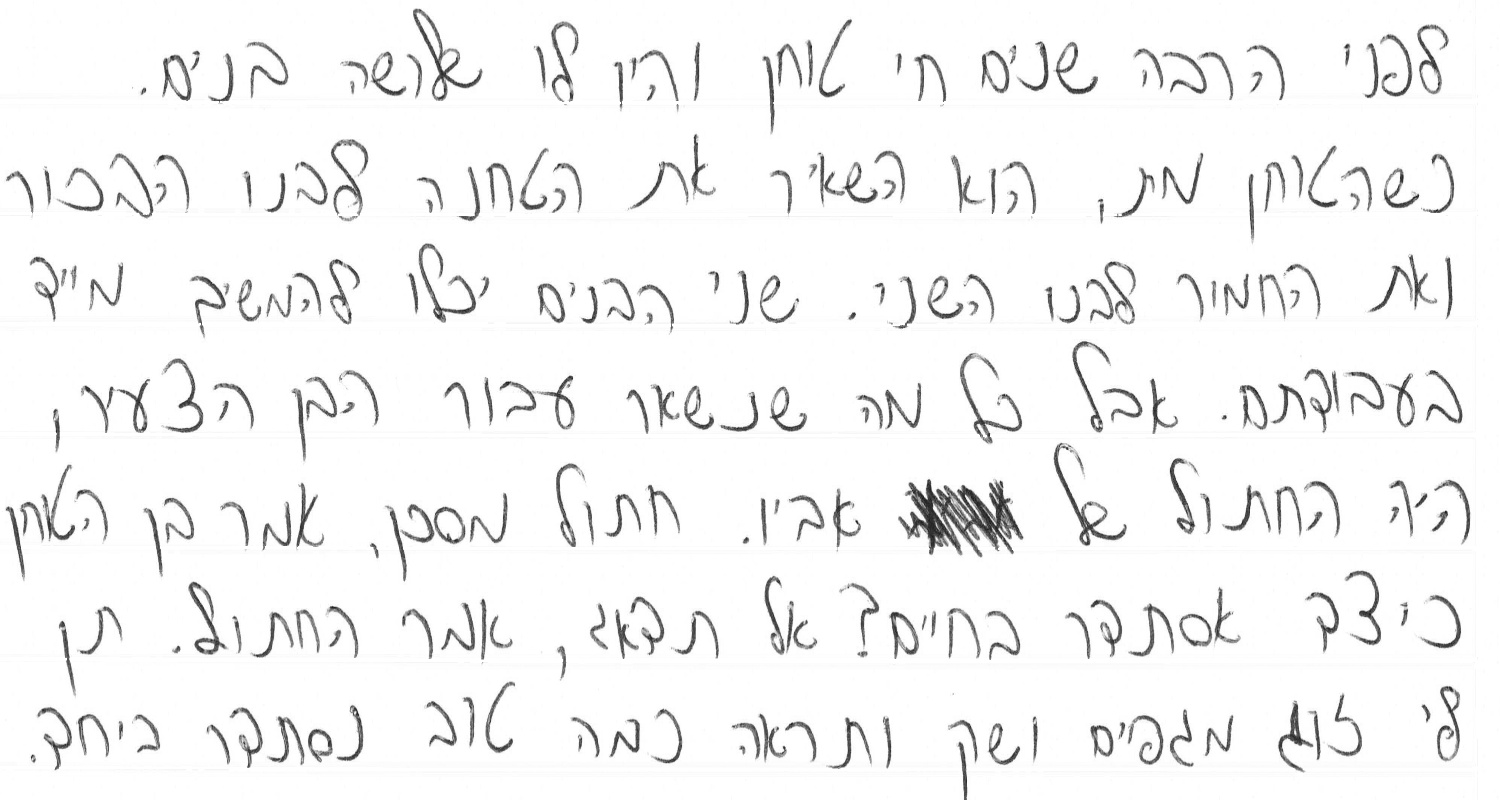 לפני הרבה שנים חי טוחן והיו לו שלושה בנים.
כשהטוחן מת, הוא השאיר את הטחנה לבנו הבכור
ואת החמור לבנו השני. שני הבנים יכלו להמשיך מייד
בעבודתם. אבל כל מה שנשאר עבור הבן הצעיר,
היה החתול של אביו. חתול מסכן, אמר בן הטוחן
כיצד אסתדר בחיים? אל תדאג, אמר החתול. תן
לי זוג מגפיים ושק ותראה כמה טוב נסתדר ביחד.